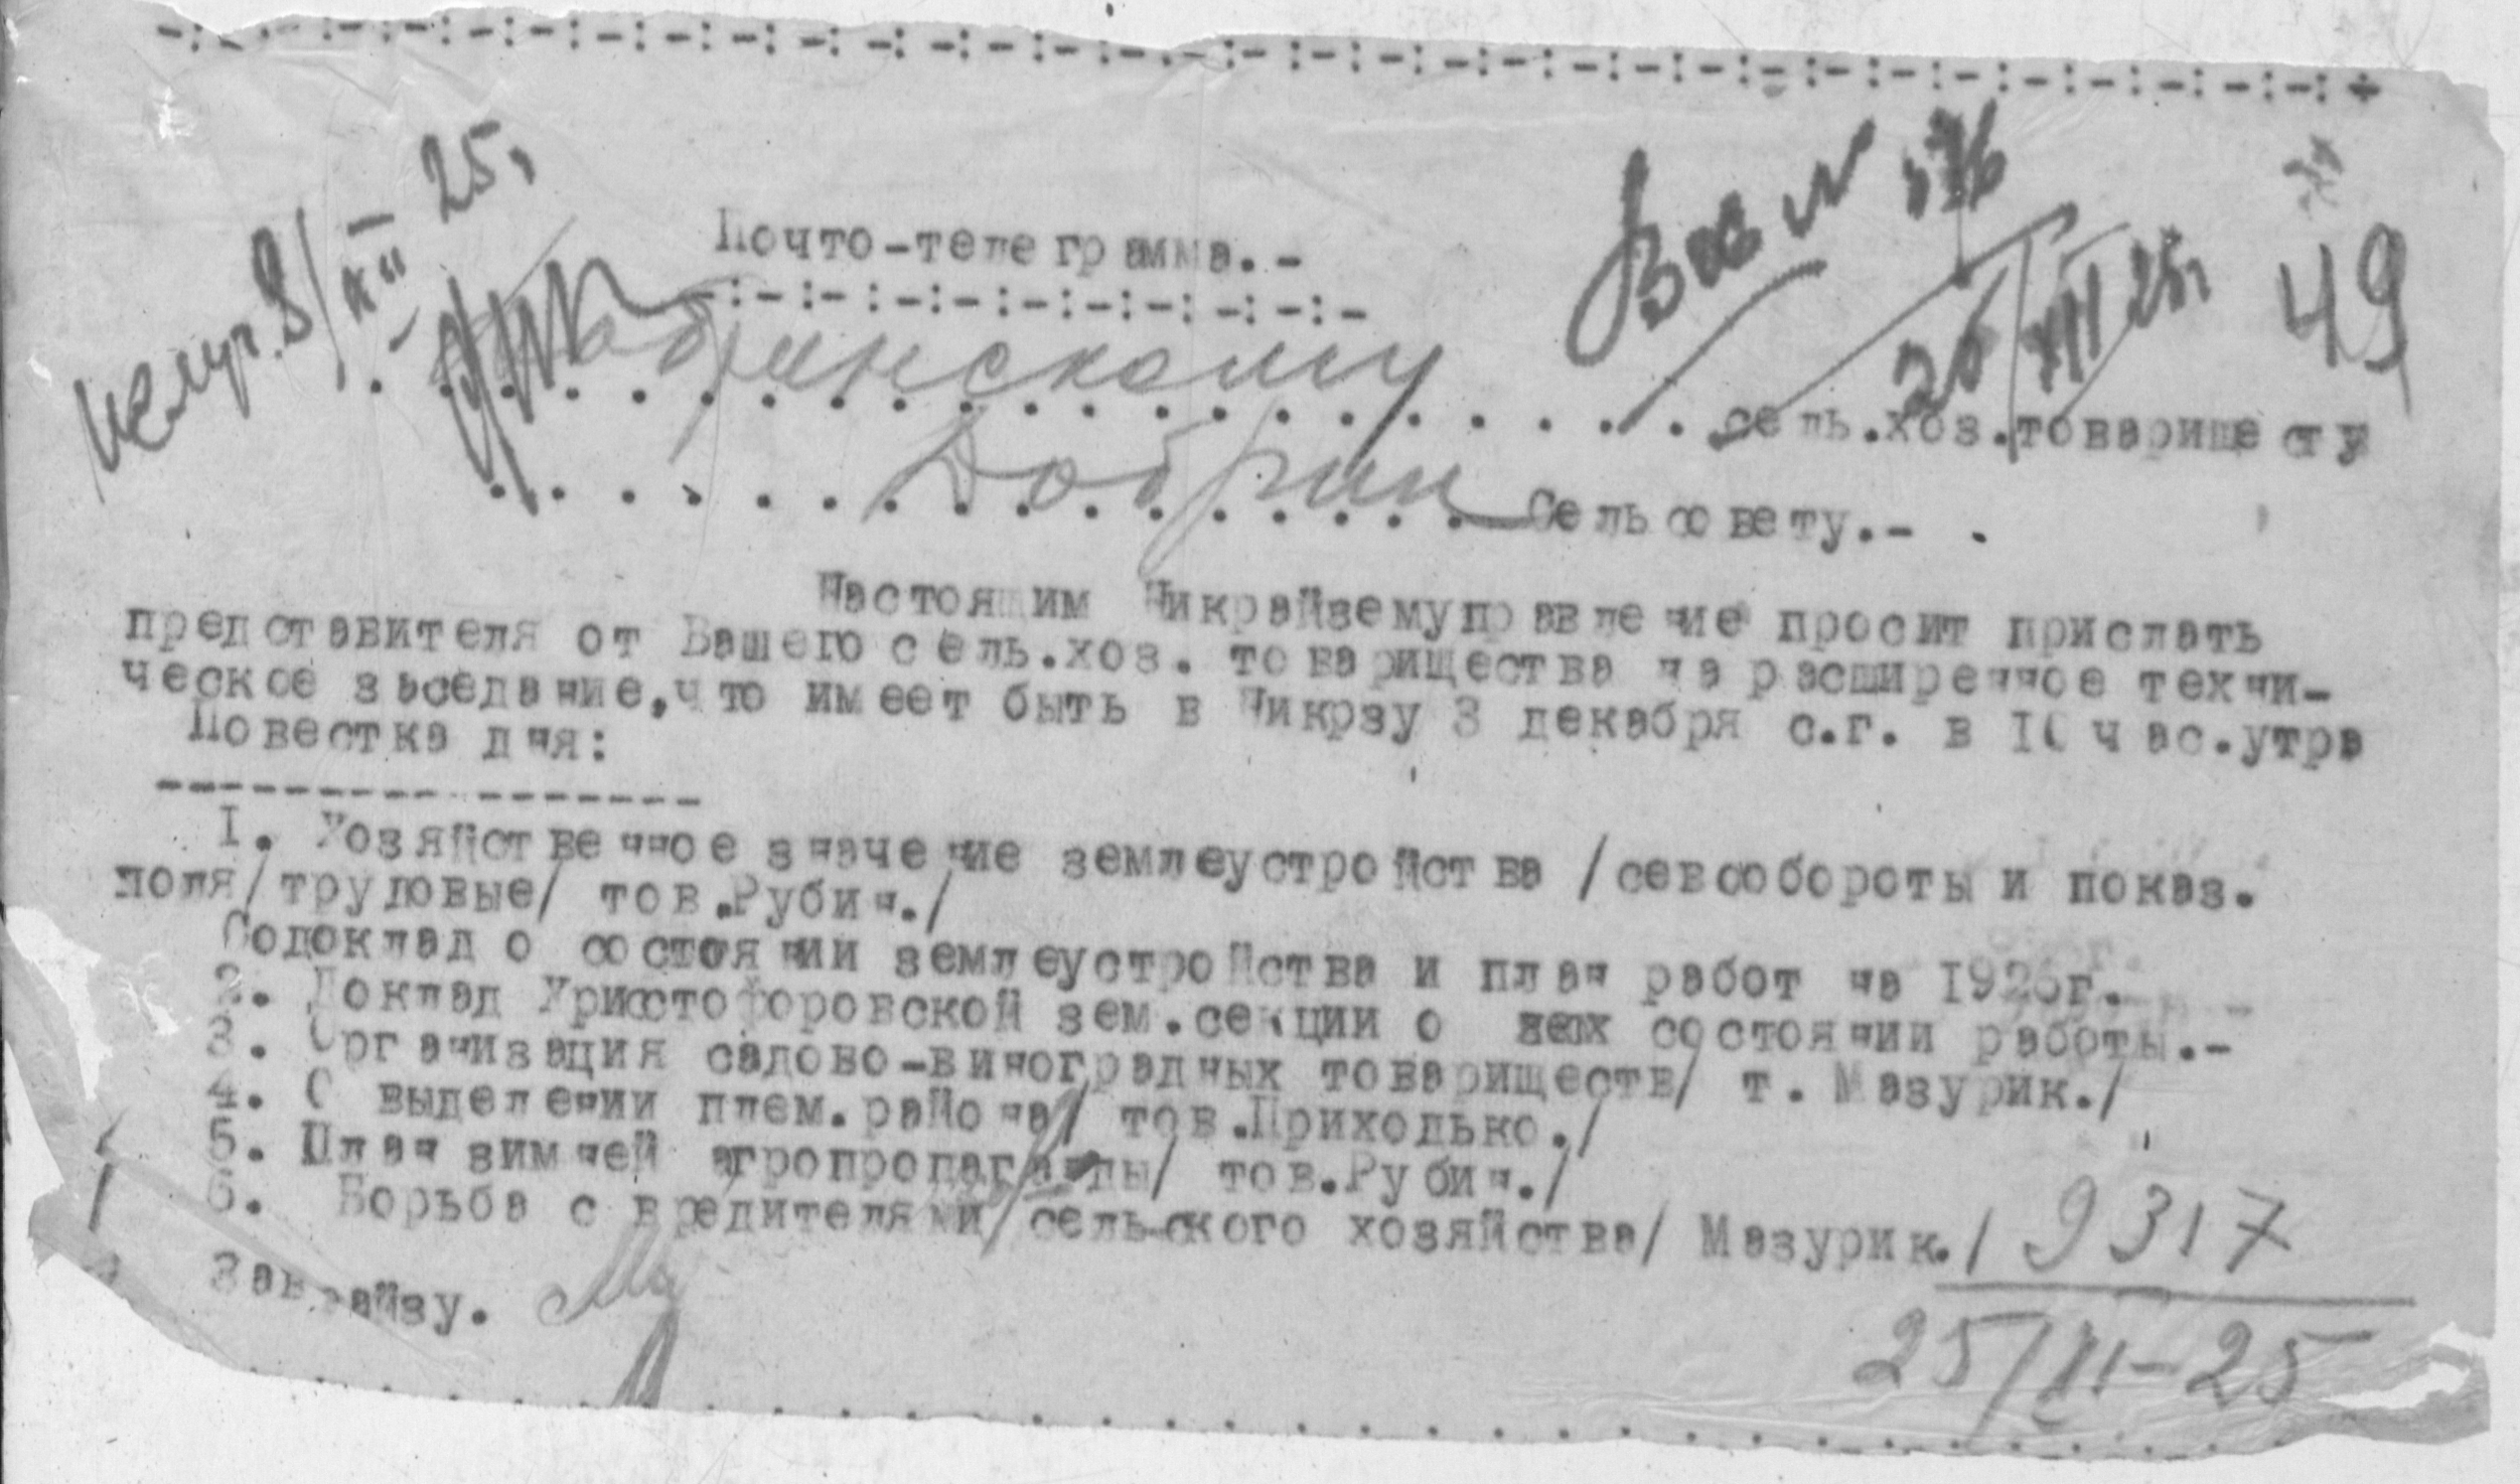 25.
Почто-телеграмма.-
49
сель.хоз.товариществу
Добрин Сельсовету.-
Настоящим Никрайземуправление просит прислать
представителя от Вашего сель.хоз. товарищества на расширенное техни-
ческое заседание,что имеет быть в Никрзу 3 декабря с.г. в 10 час.утра
Повестка дня:
I. Хозяйственное значение землеустройства /севообороты и показ.
поля/трудовые/ тов.Рубин./
Содоклад о состоянии землеустройства и план работ на 1926г.
2. Доклад Христофоровской зем.секции о состоянии работы.-
3. Организация садово-виноградных товариществ/ т. Мазурик./
4. О выделении плем.района/ тов.Приходько./
5. План зимней агропропаганды/ тов.Рубин./
6. Борьба с вредителями сельского хозяйства/ Мазурик./
9317
Заврайзу.
25/XI-25